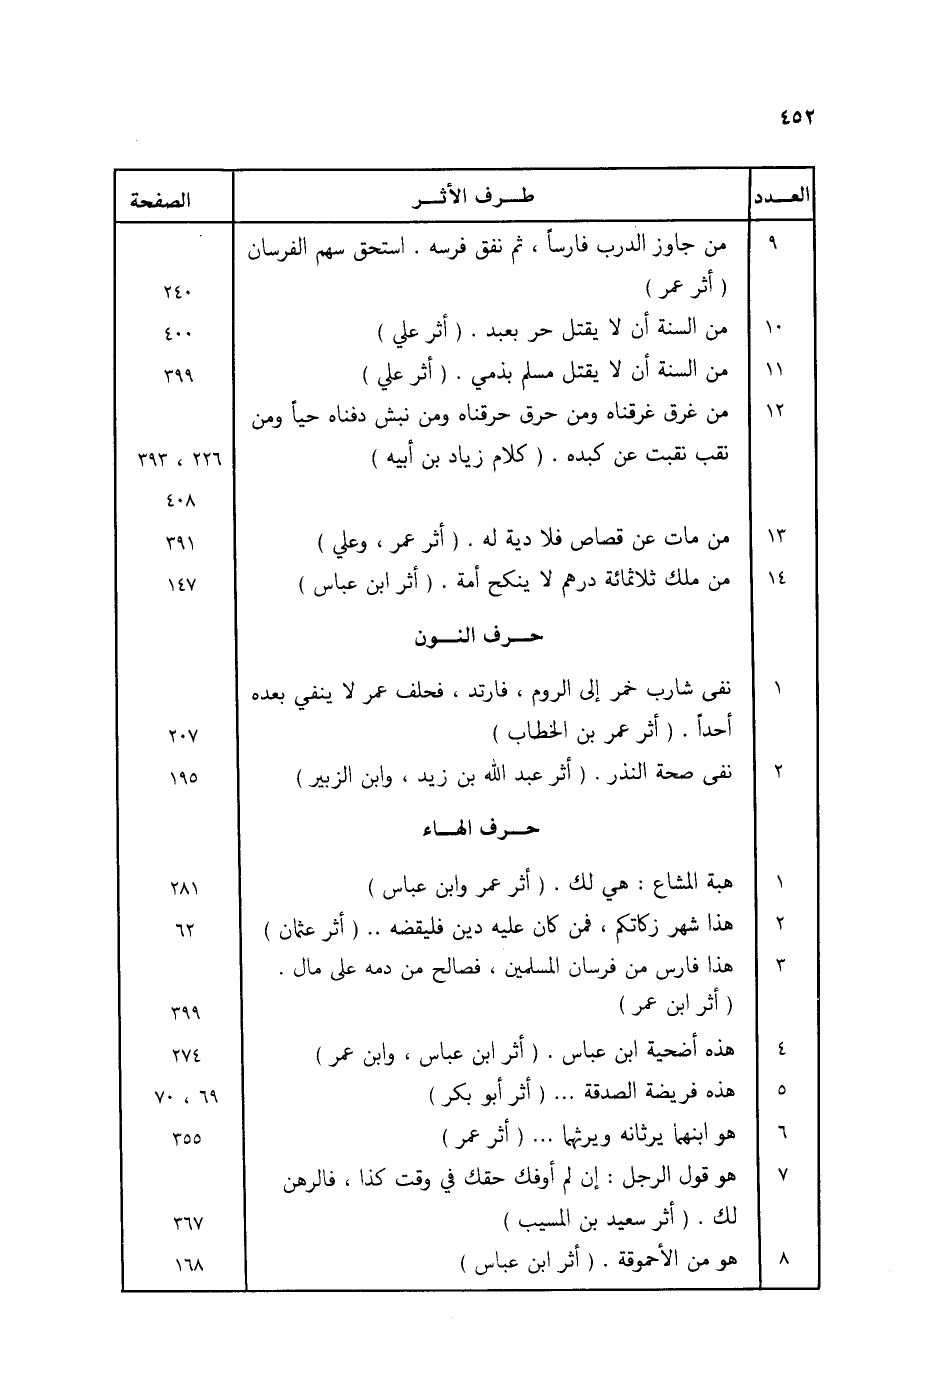 ٤٥٢
العـــدد طـــرف الأثـــر الصفحة
٩ من جاوز الدرب فارساً ، ثم نفق فرسه . استحق سهم الفرسان
( أثر عمر ) ٢٤٠
١٠ من السنة أن لا يقتل حر بعبد . ( أثر علي ) ٤٠٠
١١ من السنة أن لا يقتل مسلم بذمي . ( أثر علي ) ٣٩٩
١٢ من غرق غرقناه ومن حرق حرقناه ومن نبش دفناه حياً ومن
نقب نقبت عن كبده . ( كلام زياد بن أبيه ) ٢٢٦ ، ٣٩٣
٤٠٨
١٣ من مات عن قصاص فلا دية له . ( أثر عمر ، وعلي ) ٣٩١
١٤ من ملك ثلاثمائة درهم لا ينكح أمة . ( أثر ابن عباس ) ١٤٧
حـــرف النـــون
١ نفى شارب خمر إلى الروم ، فارتد ، فحلف عمر لا ينفي بعده
أحداً . ( أثر عمر بن الخطاب ) ٢٠٧
٢ نفى صحة النذر . ( أثر عبد الله بن زيد ، وابن الزبير ) ١٩٥
حـــرف الهـــاء
١ هبة المشاع : هي لك . ( أثر عمر وابن عباس ) ٢٨١
٢ هذا شهر زكاتكم ، فمن كان عليه دين فليقضه .. ( أثر عثمان ) ٦٢
٣ هذا فارس من فرسان المسلمين ، فصالح من دمه على مال .
( أثر ابن عمر ) ٣٩٩
٤ هذه أضحية ابن عباس . ( أثر ابن عباس ، وابن عمر ) ٢٧٤
٥ هذه فريضة الصدقة ... ( أثر أبو بكر ) ٦٩ ، ٧٠
٦ هو ابنهما يرثانه ويرثهما ... ( أثر عمر ) ٣٥٥
٧ هو قول الرجل : إن لم أوفك حقك في وقت كذا ، فالرهن
لك . ( أثر سعيد بن المسيب ) ٣٦٧
٨ هو من الأحموقة . ( أثر ابن عباس ) ١٦٨